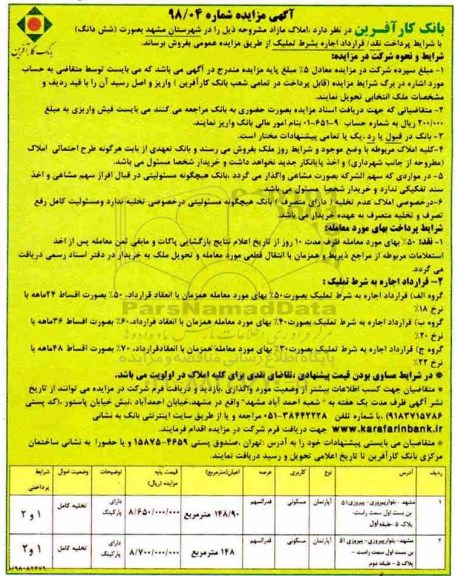 آگهی مزایده شماره ۹۸/۰۴
بانک کارآفرین در نظر دارد ،املاک مازاد مشروحه ذیل را در شهرستان مشهد بصورت (شش دانگ)
با شرایط پرداخت نقد/ قرارداد اجاره بشرط تملیک از طریق مزایده عمومی بفروش برساند.
بانک کارآفرین
شرایط و نحوه شرکت در مزایده:
۱- مبلغ سپرده شرکت در مزایده معادل ۵٪ مبلغ پایه مزایده مندرج در آگهی می باشد که می بایست توسط متقاضی به حساب
مورد اشاره در برگ شرایط مزایده (قابل پرداخت در تمامی شعب بانک کارآفرین ) واریز و اصل رسید آن را با قید ردیف و
مشخصات ملک انتخابی تحویل نمایند.
۲- متقاضیانی که جهت دریافت اسناد مزایده بصورت حضوری به بانک مراجعه می کنند می بایست فیش واریزی به مبلغ
۲۰۰/۰۰۰ ریال به شماره حساب ۹-۶۵۱-۰۱ بنام امور مالی بانک واریز نمایند.
۳- بانک در قبول یا رد ،یک یا تمامی پیشنهادات مختار است.
۴-کلیه املاک مربوطه با وضع موجود و شرایط روز ملک بفروش می رسند و بانک تعهدی از بابت هرگونه طرح احتمالی املاک
(مطروحه از جانب شهرداری) و اخذ پایانکار جدید نخواهد داشت و خریدار شخصا مسئول می باشد.
۵- در مواردی که سهم الشرکه بصورت مشاعی واگذار می گردد ،بانک هیچگونه مسئولیتی در قبال افراز سهم مشاعی و اخذ
سند تفکیکی ندارد و خریدار شخصا مسئول می باشد.
۶-درخصوص املاک عدم تخلیه ( دارای متصرف ) بانک هیچگونه مسئولیتی درخصوص تخلیه ندارد ومسئولیت کامل رفع
تصرف و تخلیه متصرف به عهده خریدار می باشد
شرایط پرداخت بهای مورد معامله:
۱- نقد: ۵۰٪ بهای مورد معامله ظرف مدت ۱۰ روز از تاریخ اعلام نتایج بازگشایی پاکات و مابقی ثمن معامله پس از اخذ
استعلامات مربوطه از مراجع ذیربط و همزمان با انتقال قطعی مورد معامله و تحویل ملک به خریدار در دفتر اسناد رسمی دریافت
می گردد.
۲- قرارداد اجاره به شرط تملیک :
گروه الف) قرارداد اجاره به شرط تملیک بصورت ۵۰٪ بهای مورد معامله همزمان با انعقاد قرارداد، ۵۰٪ بصورت اقساط ۲۴ماهه با
نرخ ۱۸٪
گروه ب) قرارداد اجاره به شرط تملیک بصورت ۴۰٪ بهای مورد معامله همزمان با انعقاد قرارداد،۶۰٪ بصورت اقساط ۳۶ماهه با
نرخ ۲۰٪
گروه ج) قرارداد اجاره به شرط تملیک بصورت ۳۰٪ بهای مورد معامله همزمان با انعقادقرارداد، ۷۰٪ بصورت اقساط ۴۸ماهه با
نرخ ۲۲٪
* در شرایط مساوی بودن قیمت پیشنهادی ،تقاضای نقدی برای کلیه املاک در اولویت می باشد.
* متقاضیان جهت کسب اطلاعات بیشتر از وضعیت مورد واگذاری ،بازدید و دریافت فرم شرکت در مزایده می توانند از تاریخ
نشر آگهی ظرف مدت یک هفته به " شعبه احمد آباد مشهد" واقع در مشهد،خیابان احمدآباد ،نبش خیابان پاستور ،(کد پستی
۹۱۸۳۷۱۵۷۸۶) ،با شماره تلفن ۳۸۴۴۲۲۲۸-۰۵۱ مراجعه و یا از طریق سایت اینترنتی بانک به نشانی
www.karafarinbank.ir جهت دریافت فرم شرکت در مزایده اقدام فرمایند.
* متقاضیان می بایستی پیشنهادات خود را به آدرس :تهران ،صندوق پستی ۴۶۵۹-۱۵۸۷۵ و یا حضورا به نشانی ساختمان
مرکزی بانک کارآفرین تا تاریخ اعلامی تحویل و رسید دریافت نمایند.
ParsNamadData
پایگاه اطلاع رسانی مناقصه و مزایده
ردیف آدرس نوع کاربری عرصه اعیان(مترمربع) قیمت پایه مزایده (ریال) توضیحات وضعیت اموال شرایط پرداختی
۱ مشهد - بلوارپیروزی- پیروزی۵۱ بن بست اول سمت راست- پلاک ۵ -طبقه اول آپارتمان مسکونی قدرالسهم ۱۴۸/۹۰ مترمربع ۸/۶۵۰/۰۰۰/۰۰۰ دارای پارکینگ تخلیه کامل ۱ و ۲
۲ مشهد - بلوارپیروزی- پیروزی ۵۱ بن بست اول سمت راست - پلاک ۵ - طبقه دوم آپارتمان مسکونی قدرالسهم ۱۴۸ مترمربع ۸/۷۰۰/۰۰۰/۰۰۰ دارای پارکینگ تخلیه کامل ۱ و۲